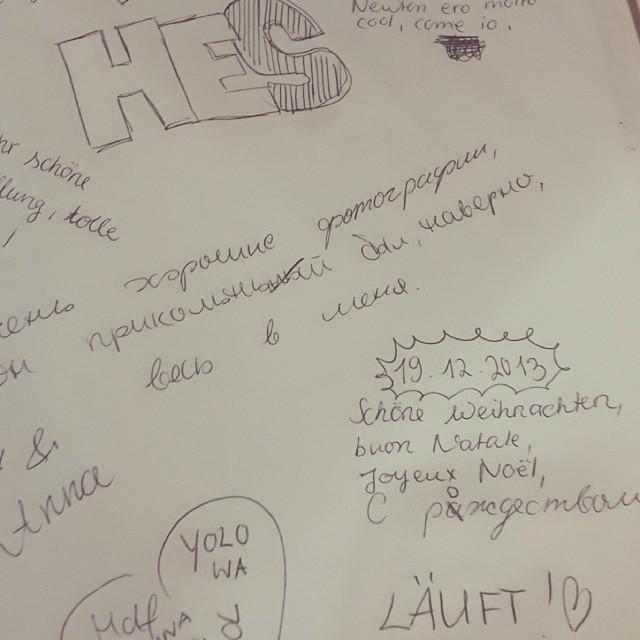 HES
Newton ero molto
cool, come io.
schöne
tolle
хорошие фотографии,
прикольный был, наверно,
весь в меня.
19.12.2013
Schöne Weihnachten,
buon Natale,
Joyeux Noël,
С рождеством
&
Anna
YOLO
WA
LÄUFT!